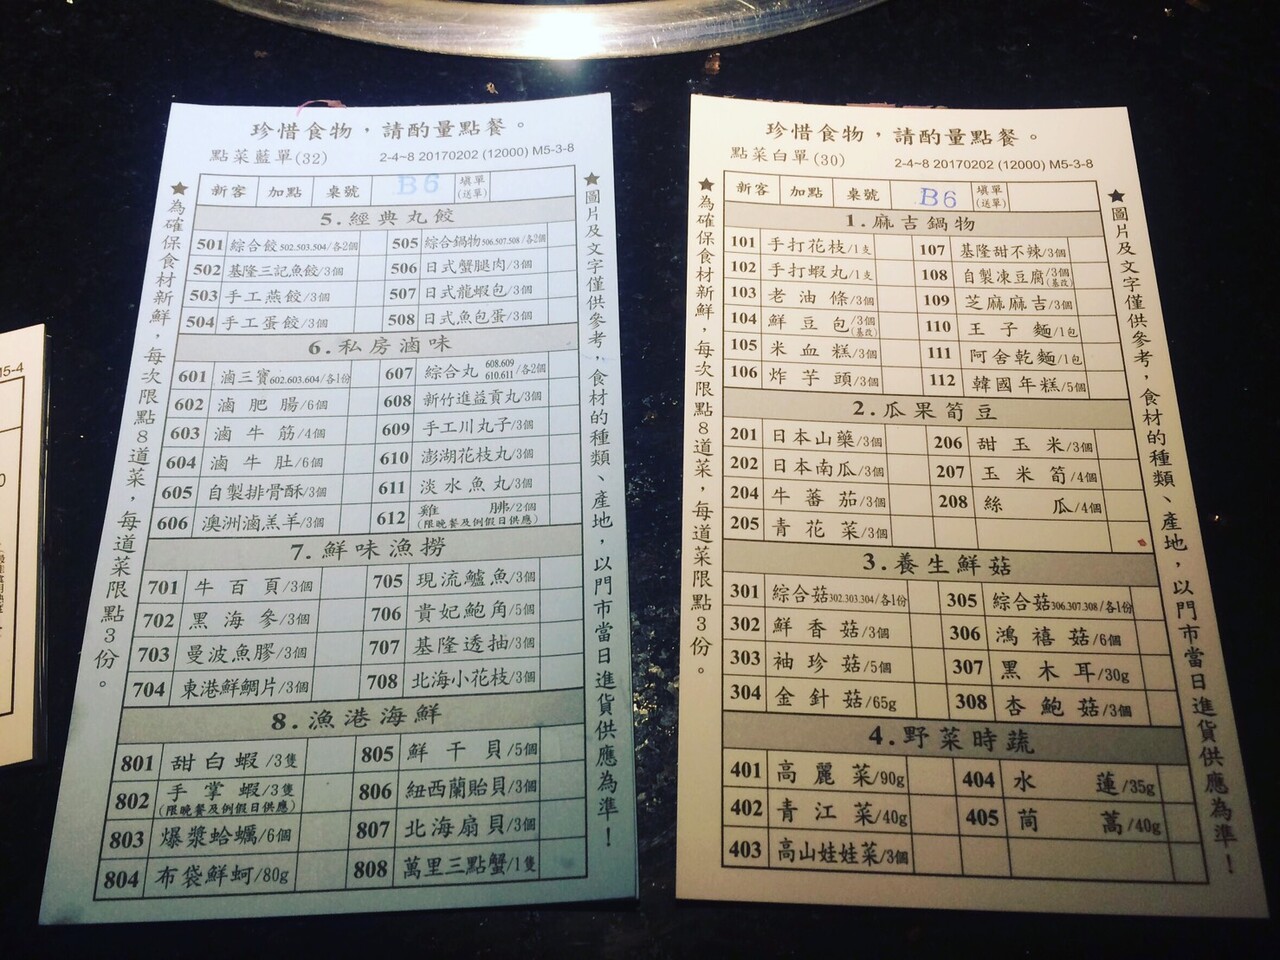 珍惜食物，請酌量點餐。
點菜藍單(32) 2-4~8 20170202 (12000) M5-3-8
新客 加點 桌號 B6 填單(送單)
5.經典丸餃
501 綜合餃502.503.504/各2個 505 綜合鍋物506.507.508/各2個
502 基隆三記魚餃/3個 506 日式蟹腿肉/3個
503 手工燕餃/3個 507 日式龍蝦包/3個
504 手工蛋餃/3個 508 日式魚包蛋/3個
6.私房滷味
601 滷三寶602.603.604/各1份 607 綜合丸608.609 610.611/各2個
602 滷肥腸/6個 608 新竹進益貢丸/3個
603 滷牛筋/4個 609 手工川丸子/3個
604 滷牛肚/6個 610 澎湖花枝丸/3個
605 自製排骨酥/3個 611 淡水魚丸/3個
606 澳洲滷羔羊/3個 612 雞胇/2個(限晚餐及例假日供應)
7.鮮味漁撈
701 牛百頁/3個 705 現流鱸魚/3個
702 黑海參/3個 706 貴妃鮑角/5個
703 曼波魚膠/3個 707 基隆透抽/3個
704 東港鮮鯛片/3個 708 北海小花枝/3個
8.漁港海鮮
801 甜白蝦/3隻 805 鮮干貝/5個
802 手掌蝦/3隻(限晚餐及例假日供應) 806 紐西蘭貽貝/3個
803 爆漿蛤蠣/6個 807 北海扇貝/3個
804 布袋鮮蚵/80g 808 萬里三點蟹/1隻
★為確保食材新鮮，每次限點8道菜，每道菜限點3份。
★圖片及文字僅供參考，食材的種類、產地，以門市當日進貨供應為準！
珍惜食物，請酌量點餐。
點菜白單(30) 2-4~8 20170202 (12000) M5-3-8
新客 加點 桌號 B6 填單(送單)
1.麻吉鍋物
101 手打花枝/1支 107 基隆甜不辣/3個
102 手打蝦丸/1支 108 自製凍豆腐/3個(基改)
103 老油條/3個 109 芝麻麻吉/3個
104 鮮豆包/3個(基改) 110 王子麵/1包
105 米血糕/3個 111 阿舍乾麵/1包
106 炸芋頭/3個 112 韓國年糕/5個
2.瓜果筍豆
201 日本山藥/3個 206 甜玉米/3個
202 日本南瓜/3個 207 玉米筍/4個
204 牛蕃茄/3個 208 絲瓜/4個
205 青花菜/3個
3.養生鮮菇
301 綜合菇302.303.304/各1份 305 綜合菇306.307.308/各1份
302 鮮香菇/3個 306 鴻禧菇/6個
303 袖珍菇/5個 307 黑木耳/30g
304 金針菇/65g 308 杏鮑菇/3個
4.野菜時蔬
401 高麗菜/90g 404 水蓮/35g
402 青江菜/40g 405 茼萵/40g
403 高山娃娃菜/3個
★為確保食材新鮮，每次限點8道菜，每道菜限點3份。
★圖片及文字僅供參考，食材的種類、產地，以門市當日進貨供應為準！